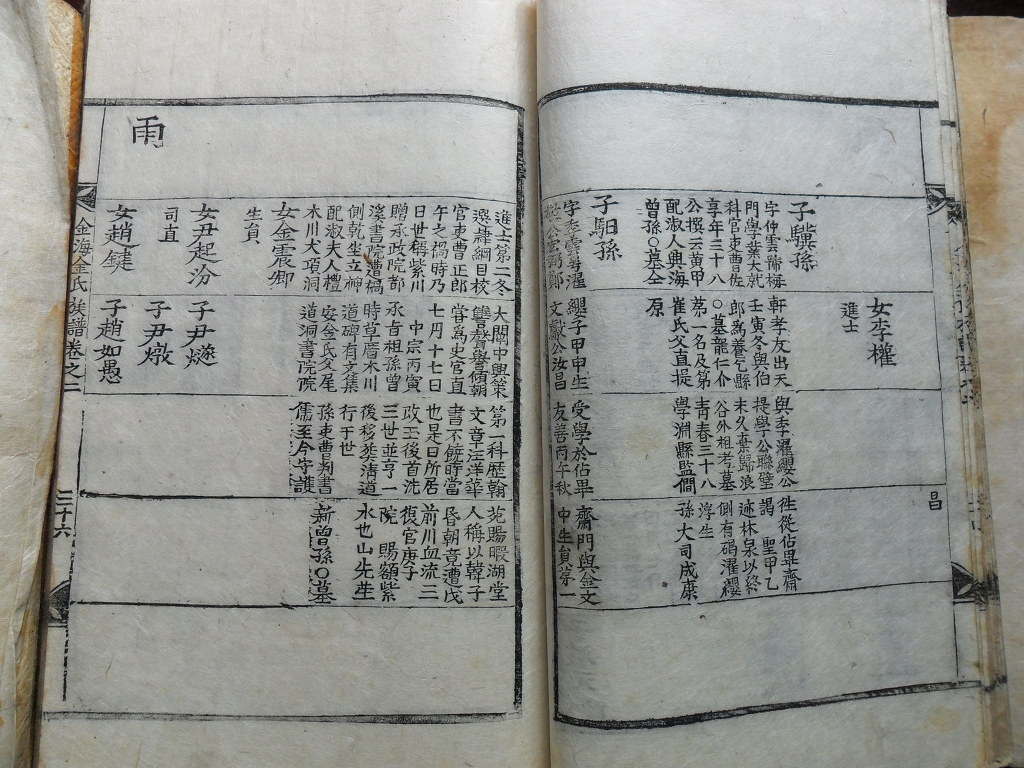 昌
女李權
進士
子驥孫
字仲雲號梅軒孝友出天與季濯纓公徃從佔畢齋
門學業大就壬寅冬與伯提學公聯璧謁 聖甲乙
科官吏曹佐郎爲養乞縣未久棄歸浪迹林泉以終
享年三十八〇墓龍仁介谷外祖考墓側有碣濯纓
公撰云黃甲第一名及第靑春三十八浮生
配淑人興海崔氏父直提學淵縣監僩孫大司成康
曾孫〇墓仝原
子馹孫
字季雲號濯纓子甲申生受學於佔畢齋門與金文
文獻公汝昌友善丙午秋中生員第一
進士第二冬大闡中興策第一科歷翰苑賜暇湖堂
選隷綱目校讐敎譽傾朝文章汪洋華人稱以韓子
官吏曹正郎嘗爲史官直書不諱時當昏朝竟遭戊
午之禍時乃七月十七日也是日所居前川血流三
日世稱紫川 中宗丙寅改玉後首洗復官庚子
贈承政院都承旨祖孫曾三世並享一院 賜額紫
溪書院遭禍時草厝木川後移葬淸道水也山先塋
側乾坐立神道碑有文集行于世
配淑夫人禮安金氏父尾孫吏曹判書新曾孫〇墓
木川大項洞道洞書院院儒至今守護
女金震卿
生員
女尹起汾
子尹燧
司直
子尹燉
女趙鍵
子趙如愚
雨
金海金氏族譜卷之二
三十六